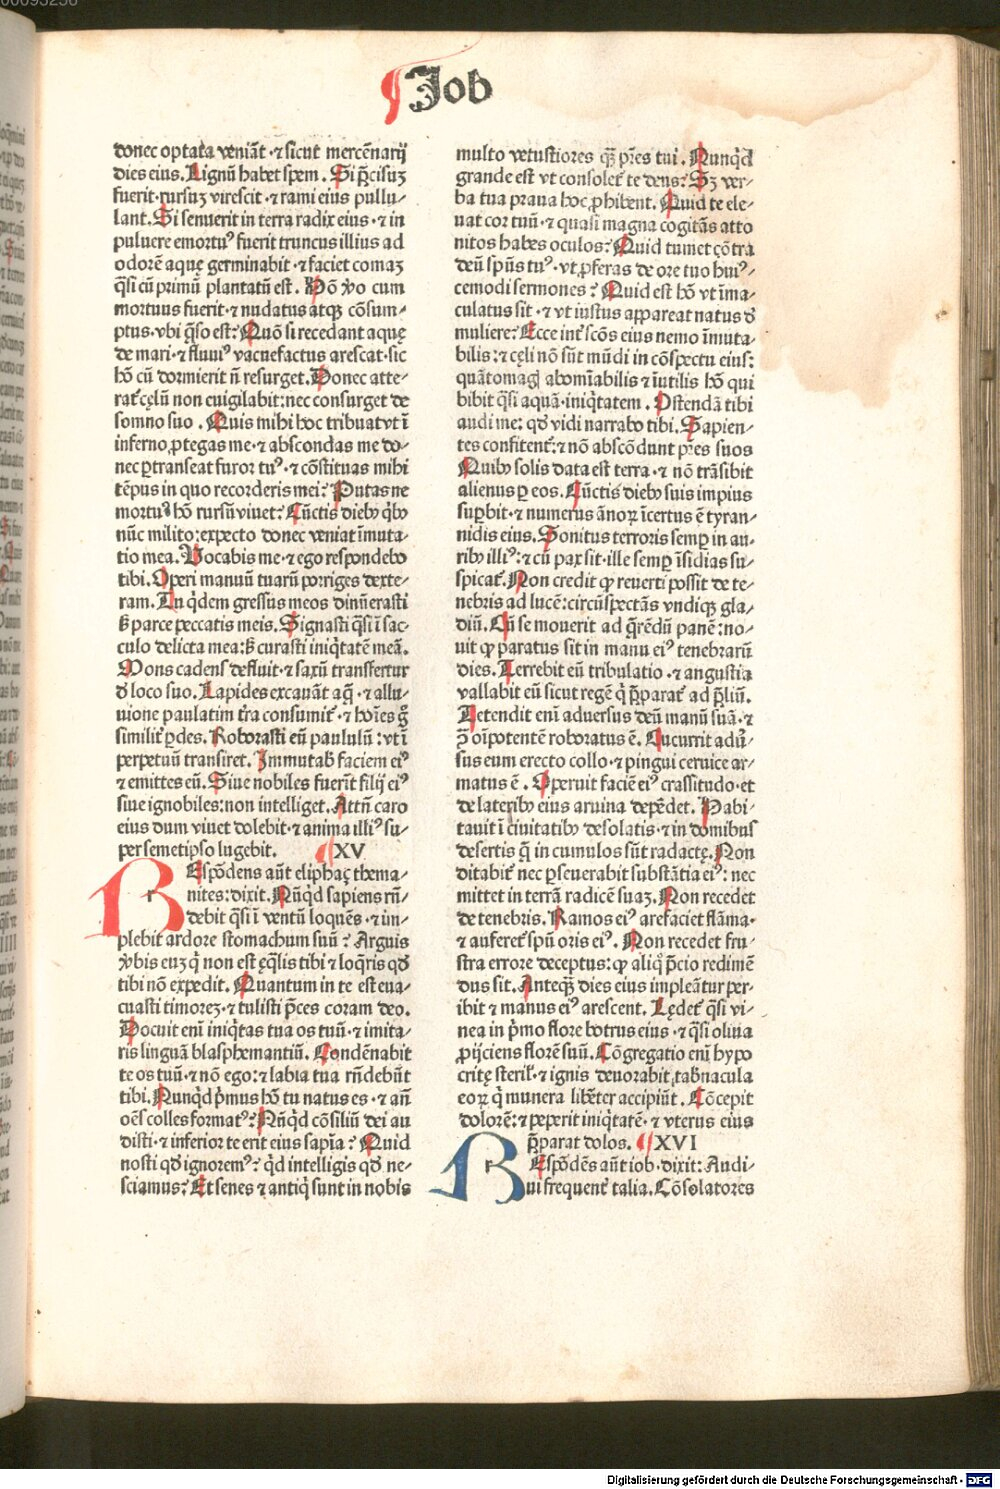 Job
donec optata veniãt ⁊ sicut mercẽnarij
dies eius. Lignũ habet spem. Si p̃cisuȝ
fuerit rursuȝ virescit ⁊ rami eius pullu/
lant. Si senuerit in terra radix eius ⁊ in
puluere emortuꝰ fuerit truncus illius ad
odorẽ aquę germinabit ⁊ faciet comaȝ
q̃si cũ primũ plantatũ est. Hõ ꝟo cum
mortuus fuerit ⁊ nudatus atqȝ cõsum/
ptus vbi q̃so est: Quõ si recedant aquę
de mari ⁊ fluuiꝰ vacuefactus arescat sic
hõ cũ dormierit ñ resurget. Donec atte/
rat᷑ cęlũ non euigilabit: nec consurget de
somno suo. Quis mihi hoc tribuat vt ĩ
inferno ꝓtegas me ⁊ abscondas me do/
nec ꝑtranseat furor tuꝰ ⁊ cõstituas mihi
tẽpus in quo recorderis mei: Putas ne
mortuꝰ hõ rursũ viuet: Cũctis diebꝰ q̃bꝰ
nũc milito: expecto donec veniat ĩmuta/
tio mea. Vocabis me ⁊ ego respondebo
tibi. Operi manuũ tuarũ porriges dexte/
ram. Tu q̃dem gressus meos dinũerasti
ß parce peccatis meis. Signasti q̃si ĩ sac/
culo delicta mea: ß curasti iniq̃tatẽ meã.
Mons cadens defluit ⁊ saxũ transfertur
ð loco suo. Lapides excauãt aq̃ ⁊ allu/
uione paulatim t̃ra consumit᷑ ⁊ hoĩes g̃
similit᷑ ꝑdes. Roborasti eũ paululũ: vt ĩ
perpetuũ transiret. Immutabꝭ faciem eiꝰ
⁊ emittes eũ. Siue nobiles fuerĩt filij eiꝰ
siue ignobiles: non intelliget. Attñ caro
eius dum viuet dolebit ⁊ anima illiꝰ su/
per semetipso lugebit. XV
REspõdens aũt eliphaç thema/
nites: dixit. Nũq̃d sapiens rñ/
debit q̃si ĩ ventũ loquẽs ⁊ im/
plebit ardore stomachum suũ: Arguis
ꝟbis euȝ q̃ non est ęq̃lis tibi ⁊ loq̃ris qð
tibi nõ expedit. Quantum in te est eua/
cuasti timoreȝ ⁊ tulisti p̃ces coram deo.
Docuit eni iniq̃tas tua os tuũ ⁊ imita/
ris linguã blasphemantiũ. Condẽnabit
te os tuũ ⁊ nõ ego: ⁊ labia tua rñdebũt
tibi. Nunq̃d p̃mus hõ tu natus es ⁊ añ
oẽs colles formatꝰ: Nũq̃d cõsiliũ dei au
disti ⁊ inferior te erit eius sapĩa: Quid
nosti qð ignoremꝰ: q̃d intelligis qð ne/
sciamus: Et senes ⁊ antiq̃ sunt in nobis
multo vetustiores q̃ȝ p̃res tui. Nunq̃d
grande est vt consolet᷑ te deus: Sȝ ver/
ba tua praua hoc ꝓhibent. Quid te ele/
uat cor tuũ ⁊ quasi magna cogitãs atto
nitos habes oculos: Quid tumet cõtra
deũ spũs tuꝰ vt ꝓferas de ore tuo huiꝰ/
cemodi sermones: Quid est hõ vt ĩma/
culatus sit ⁊ vt iustus appareat natus ð
muliere: Ecce int᷑ scõs eius nemo ĩmuta/
bilis: ⁊ cęli nõ sũt mũdi in cõspectu eius:
quãtomagꝭ abomĩabilis ⁊ ĩutilis hõ qui
bibit q̃si aquã iniq̃tatem. Ostendã tibi
audi me: qð vidi narrabo tibi. Sapien/
tes confitent᷑: ⁊ nõ abscõdunt p̃res suos
Quibꝰ solis data est terra ⁊ nõ trãsibit
alienus ꝑ eos. Cũctis diebꝰ suis impius
suꝑbit ⁊ numerus ãnoꝝ ĩcertus ẽ tyran/
nidis eius. Sonitus terroris semꝑ in au/
ribꝰ illiꝰ: ⁊ cũ pax sit ille semꝑ ĩsidias su/
spicat᷑. Non credit ꝙ reuerti possit de te/
nebris ad lucẽ: circũspectãs vndiqȝ gla/
diũ. Cũ se mouerit ad q̃rẽdũ panẽ: no/
uit ꝙ paratus sit in manu eiꝰ tenebrarũ
dies. Terrebit eũ tribulatio ⁊ angustia
vallabit eũ sicut regẽ q̃ p̃parat᷑ ad p̃liũ.
Tetendit eni aduersus deũ manũ suã ⁊
ↄ̃ oĩpotentẽ roboratus ẽ. Cucurrit aduꝰ/
sus eum erecto collo ⁊ pingui ceruice ar/
matus ẽ. Operuit faciẽ eiꝰ crassitudo et
de lateribꝰ eius aruina depẽdet. Habi/
tauit ĩ ciuitatibꝰ desolatis ⁊ in domibus
desertis q̃ in cumulos sũt radactę. Non
ditabit᷑ nec ꝑseuerabit substãtia eiꝰ: nec
mittet in terrã radicẽ suaȝ. Non recedet
de tenebris. Ramos eiꝰ arefaciet flãma
⁊ auferet᷑ spũ oris eiꝰ. Non recedet fru/
stra errore deceptus: ꝙ aliq̃ p̃cio redimẽ
dus sit. Anteqȝ dies eius impleãtur per/
ibit ⁊ manus eiꝰ arescent. Lędet᷑ q̃si vi/
nea in p̃mo flore botrus eius ⁊ q̃si oliua
ꝓijciens florẽ suũ. Cõgregatio eni hypo
critę steril᷑ ⁊ ignis deuorabit tab̃nacula
eoꝝ q̃ munera libẽter accipiũt. Cõcepit
dolorẽ: ⁊ peperit iniq̃tatẽ ⁊ vterus eius
p̃parat dolos. XVI
REspõdẽs aũt iob dixit: Audi/
ui frequent᷑ talia. Cõsolatores
Digitalisierung gefördert durch die Deutsche Forschungsgemeinschaft - DFG